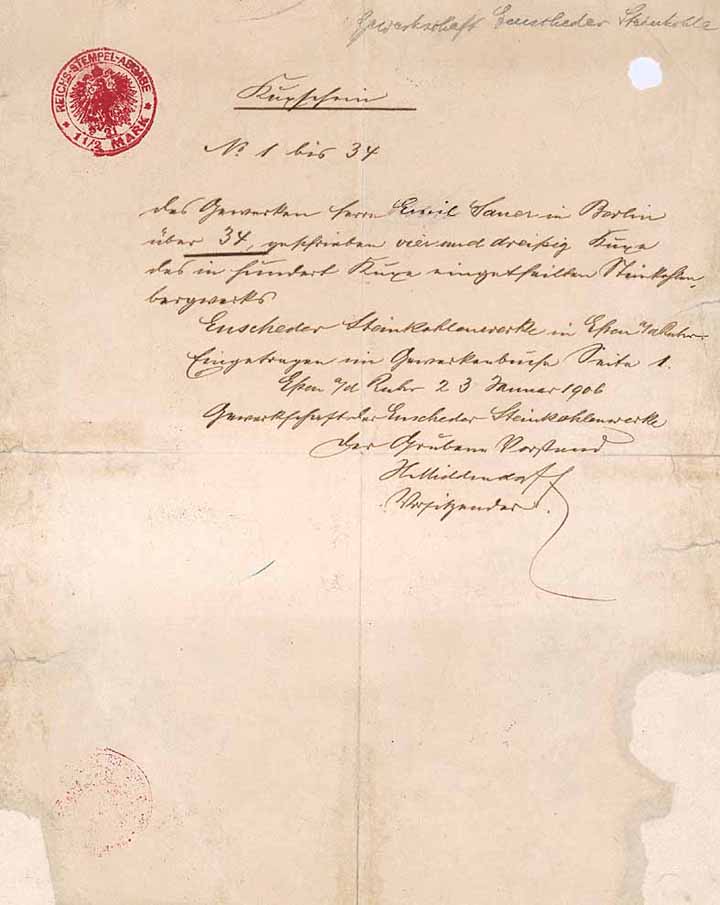 Gewerkschaft Enscheder Steinkohle
REICHS-STEMPEL-ABGABE
1 1/2 MARK
Kuxschein
No 1 bis 34
des Gewerken Herrn Emil Sauer in Berlin
über 34, geschrieben vier und dreißig Kuxe
des in hundert Kuxe eingetheilten Steinkohlen-
bergwerks
Enscheder Steinkohlenwerke in Essen a/d Ruhr.
Eingetragen im Gewerkenbuche Seite 1.
Essen a/d Ruhr 23 Januar 1906
Gewerkschaft der Enscheder Steinkohlenwerke
Der Gruben Vorstand
H Middendorf
Vorsitzender.